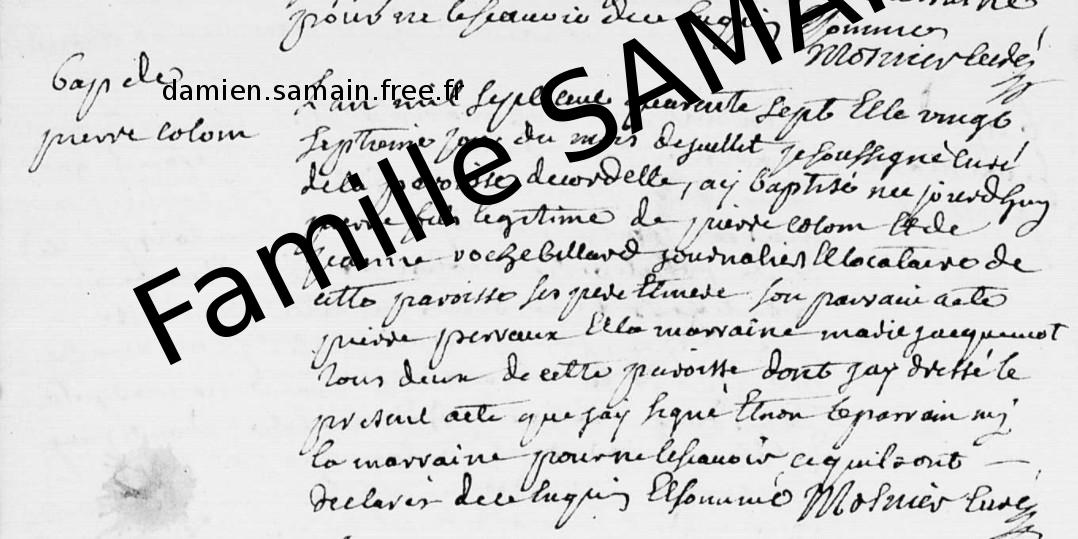 pour ne le scavoir de ce
sommes
Mosnier curé
bap de
damien.samain.free.fr
pierre colom
Famille SAMAI
L'an mil sept cent quarente sept et le vingt
septieme jour du mois de juillet je soussigné curé
de la paroisse de cordelle, aÿ baptisé ne jourdhuy
pierre fils legitime de pierre colom et de
jeanne rochebillard journalier et locataire de
cette paroisse ses pere et mere son parrain a ete
pierre perraux et la marraine marie jacquemot
tous deux de cette paroisse dont jay dressé le
present acte que jay signé et non le parrain nÿ
la marraine pour ne le scavoir ce quils ont
declarés de ce et sommé Mosnier curé